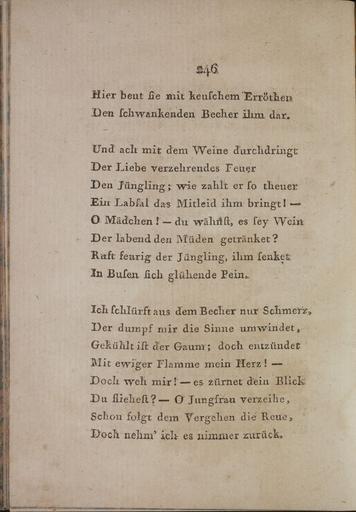 246
Hier beut ſie mit keuſchem Erröthen
Den ſchwankenden Becher ihm dar.
Und ach mit dem Weine durchdringt
Der Liebe verzehrendes Feuer
Den Jüngling; wie zahlt er ſo theuer
Ein Labſal das Mitleid ihm bringt! —
O Mädchen! — du wähnſt, es ſey Wein
Der labend den Müden getränket?
Ruft feurig der Jüngling, ihm ſenket
In Buſen ſich glühende Pein.
Ich ſchlürft aus dem Becher nur Schmerz,
Der dumpf mir die Sinne umwindet,
Gekühlt iſt der Gaum; doch entzündet
Mit ewiger Flamme mein Herz! —
Doch weh mir! — es zürnet dein Blick
Du flieheſt? — O Jungfrau verzeihe,
Schon folgt dem Vergehen die Reue,
Doch nehm' ich es nimmer zurück.